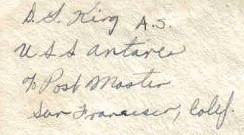 D. G. King A.S.
U S S Antares
℅ Post Master
San Francisco, Calif.